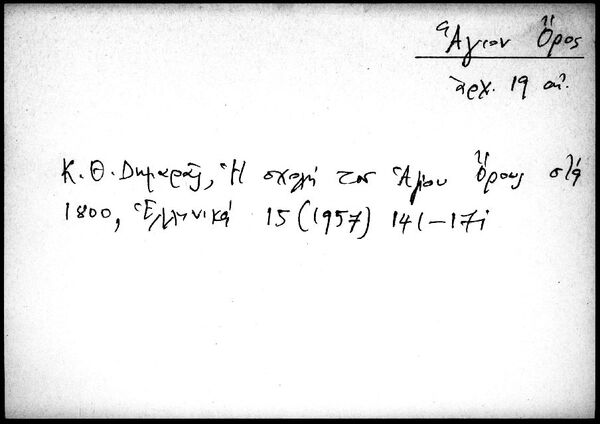 Ἅγιον Ὄρος
ἀρχ. 19 αἰ.
Κ. Θ. Δημαρᾶς, Ἡ σχολή του Ἁγίου Ὄρους στά
1800, Ἑλληνικά 15 (1957) 141-171